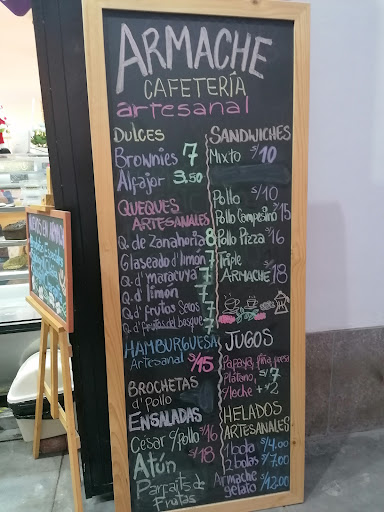 ARMACHE
CAFETERÍA
artesanal
DULCES
Brownies 7
Alfajor 3.50
QUEQUES
ARTESANALES
Q. de Zanahoria 8
Glaseado d'limón 7
Q. d' maracuya 7
Q. d' limón 7
Q. d' frutos secos 7
Q. d' frutos del bosque 7
HAMBURGUESA
Artesanal S/15
BROCHETAS
d' Pollo
ENSALADAS
César s/Pollo S/16
Atún S/18
Parfaits de
frutas
SANDWICHES
Mixto S/10
Pollo S/10
Pollo Campesino S/15
Pollo Pizza S/16
Triple
ARMACHE S/18
JUGOS
Papaya, piña, fresa
Plátano, S/7
s/leche + S/2
HELADOS
ARTESANALES
1 bola S/4.00
2 bolas S/7.00
Armache
gelato S/12.00